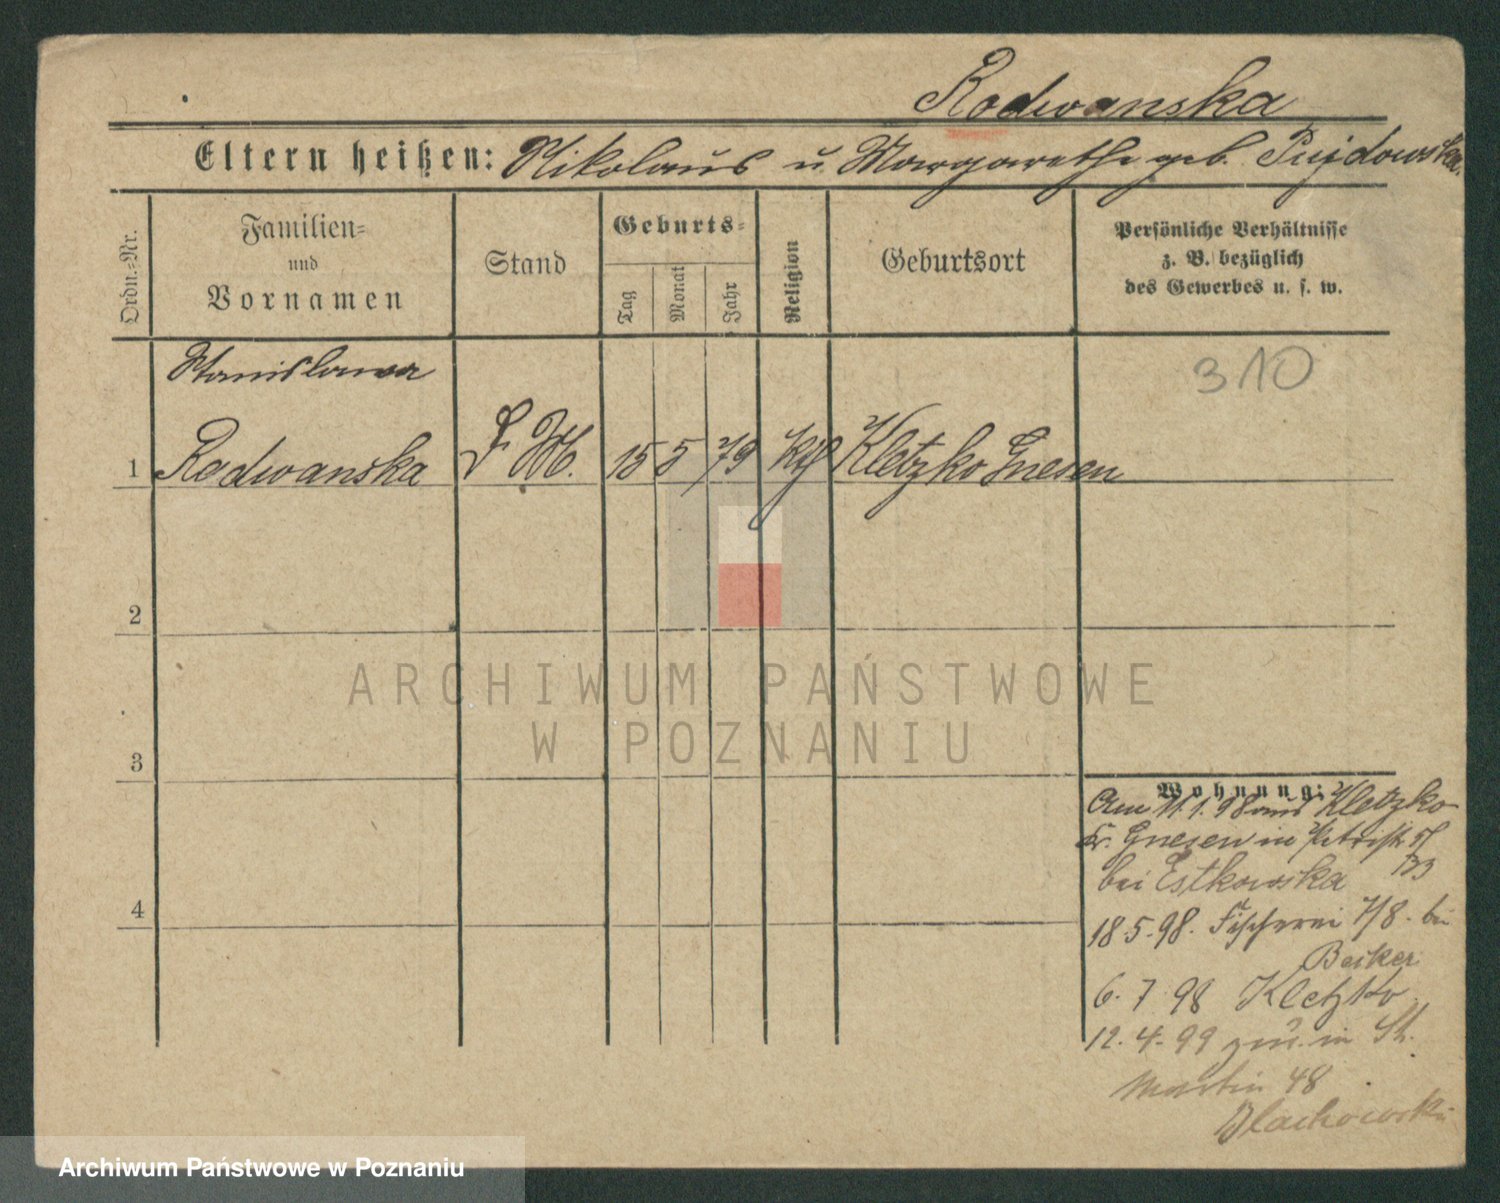 Radwanska
Eltern heißen: Nikolaus u. Margarethe geb. Pujdowska.
Ordn.-Nr.
Familien-
und
Vornamen
Stand
Geburts-
Tag
Monat
Jahr
Religion
Geburtsort
Persönliche Verhältnisse
z. B. bezüglich
des Gewerbes u. s. w.
310
Stanislawa
1 Radwanska D. M. 15 5 79 kth Kletzko Gnesen
2
3
4
Wohnung:
Am 11.1.98 aus Kletzko
Kr. Gnesen in
bei Estkowska
18.5.98. Fischerei 7/8. bei
Becker
6.7.98 Kletzko
12.4.99 zur. in St.
Martin 48
Wlachowski
ARCHIWUM PAŃSTWOWE
W POZNANIU
Archiwum Państwowe w Poznaniu